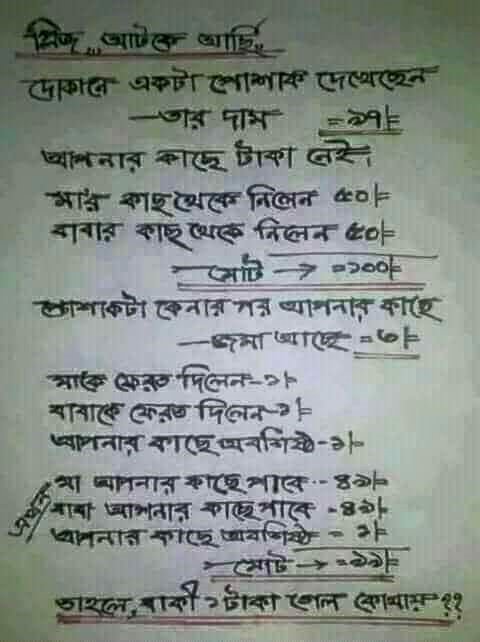 প্লিজ,,, আটকে আছি,,
দোকানে একটা পোশাক দেখেছেন
—তার দাম =৯৭/=
আপনার কাছে টাকা নেই।
মা'র কাছ থেকে নিলেন ৫০/=
বাবার কাছ থেকে নিলেন ৫০/=
মোট → =১০০/=
পোশাকটা কেনার পর আপনার কাছে
—জমা আছে =৩/=
মাকে ফেরত দিলেন-১/=
বাবাকে ফেরত দিলেন-১/=
আপনার কাছে অবশিষ্ট-১/=
এখন
মা আপনার কাছে পাবে -- ৪৯/=
বাবা আপনার কাছে পাবে -৪৯/=
আপনার কাছে অবশিষ্ট - ১/=
মোট → =৯৯/=
তাহলে, বাকী ১টাকা গেল কোথায়??